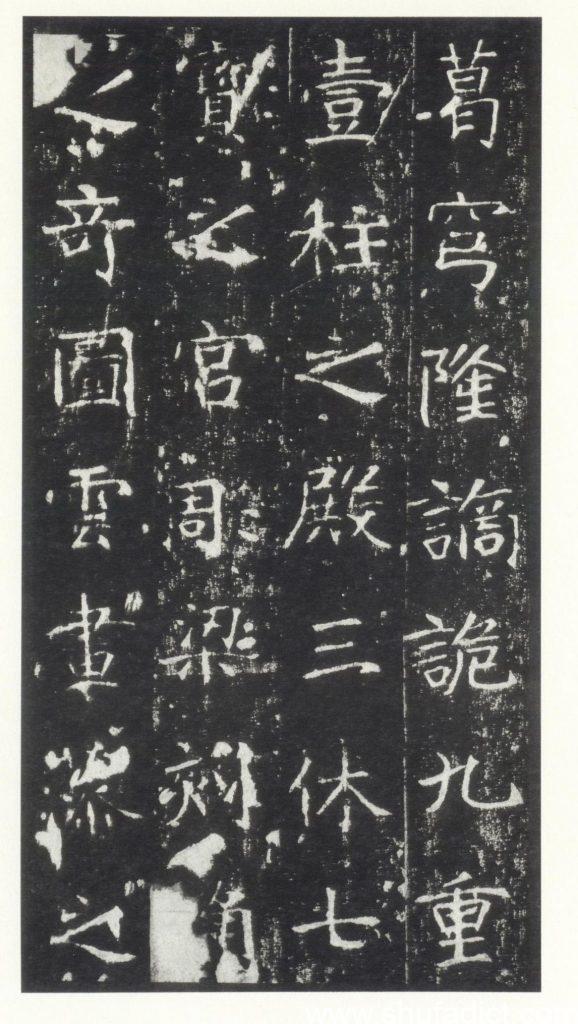 葛穹隆譎詭九重
壹柱之殿三休七
寶之宮彫梁刻
之奇圖雲畫之